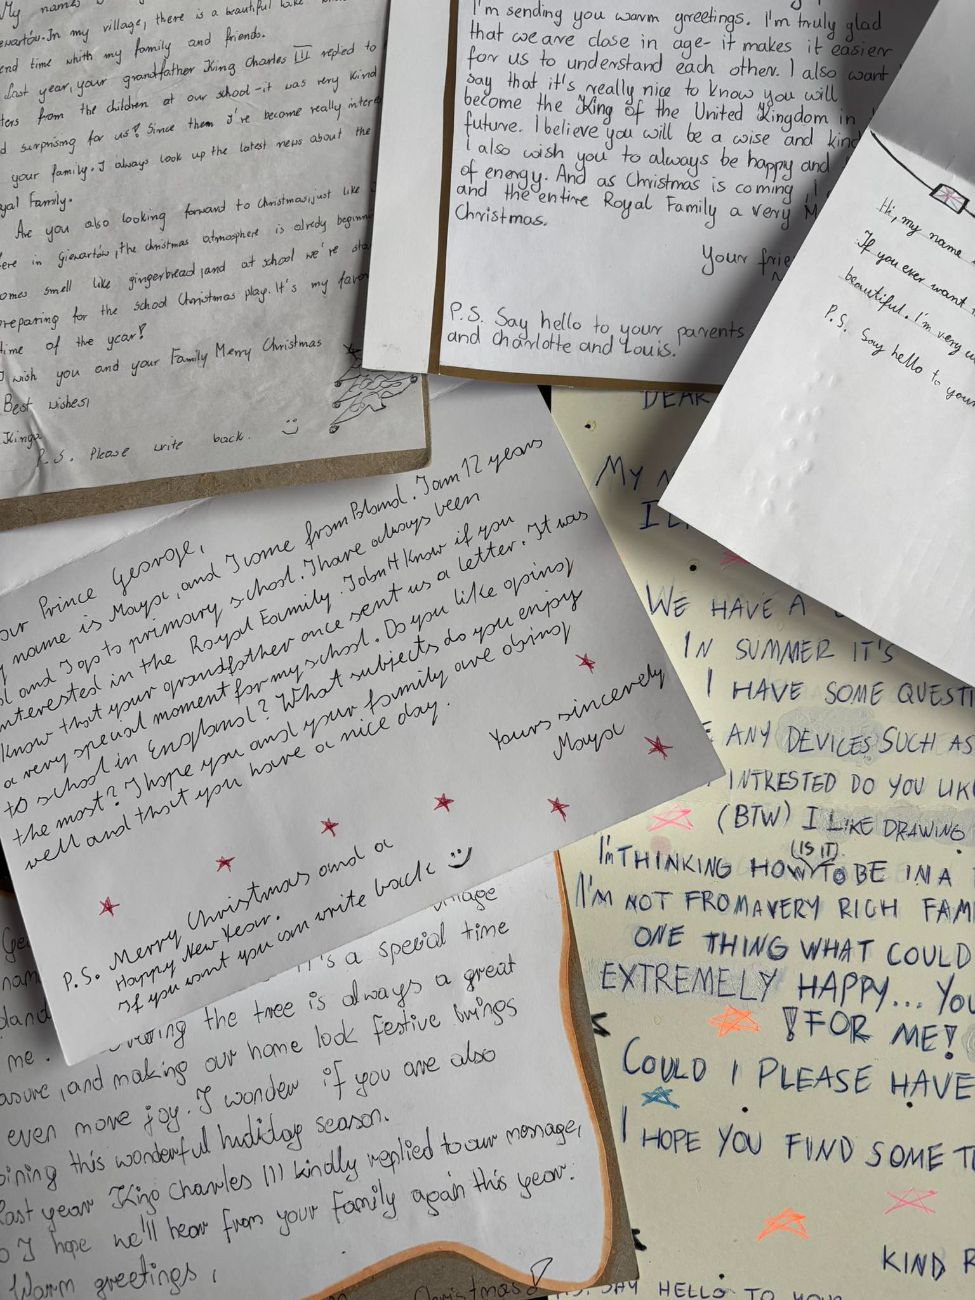 My names
Giewartów. In my village, there is a beautiful lake
end time whith my family and friends.
Last year, your grandfather King Charles III replied to
ters from the children at our school - it was very kind
d surprising for us! Since then I've become really intere
your family. I always look up the latest news about the
yal Family.
Are you also looking forward to Christmas, just like
ere in Giewartów, the christmas atmosphere is alredy beginn
omes smell like gingerbread, and at school we're sta
preparing for the school Christmas play. It's my favor
time of the year!
I wish you and your Family Merry Christmas
Best wishes,
Kinga
P.S. Please write back. :)
I'm sending you warm greetings. I'm truly glad
that we are close in age - it makes it easier
for us to understand each other. I also want
say that it's really nice to know you will
become the King of the United Kingdom in
future. I believe you will be a wise and kind
I also wish you to always be happy and
of energy. And as Christmas is coming I
and the entire Royal Family a very M
Christmas.
Your frie
P.S. Say hello to your parents
and charlotte and Louis.
Hi, my name
If you ever want t
beautiful. I'm very
P.S. Say hello to your
Prince George,
name is Maya, and I come from Poland. I am 12 years
and I go to primary school. I have always been
nterested in the Royal Family. I don't know if you
know that your grandfather once sent us a letter. It was
a very special moment for my school. Do you like going
to school in England? What subjects do you enjoy
the most? I hope you and your family are doing
well and that you have a nice day.
Yours sincerely
Maya
P.S. Merry Christmas and a
Happy New Year.
If you want you can write back :)
village
It's a special time
the tree is always a great
asure, and making our home look festive brings
even more joy. I wonder if you are also
oining this wonderful holiday season.
Last year King Charles III kindly replied to our message,
so I hope we'll hear from your Family again this year.
Warm greetings,
Christmas
DEAR
MY N
I L
WE HAVE A
IN SUMMER IT'S
I HAVE SOME QUESTI
ANY DEVICES SUCH AS
INTRESTED DO YOU LIK
(BTW) I LIKE DRAWING
I'M THINKING HOW (IS IT) TO BE IN A
I'M NOT FROM A VERY RICH FAM
ONE THING WHAT COULD
EXTREMELY HAPPY... YOU
!FOR ME!
COULD I PLEASE HAVE
I HOPE YOU FIND SOME T
KIND R
SAY HELLO TO YOUR